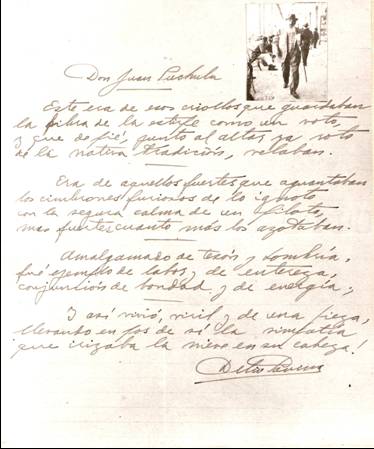 Don Juan
Este era de esos criollos que guardaban
la fibra de la estirpe como un voto,
y que de pié, junto al altar ya roto
de la nativa tradición, velaban.
Era de aquellos fuertes que aguantaban
los cimbrones furiosos de lo ignoto
con la segura calma de un piloto,
mas fuertes cuanto más los azotaban.
Amalgamado de tesón y hombría,
fué ejemplo de labor y de entereza,
conjunción de bondad y de energía;
Y así vivió, viril y de una pieza,
llevando en pos de sí la simpatía
que irizaba la nieve en su cabeza!